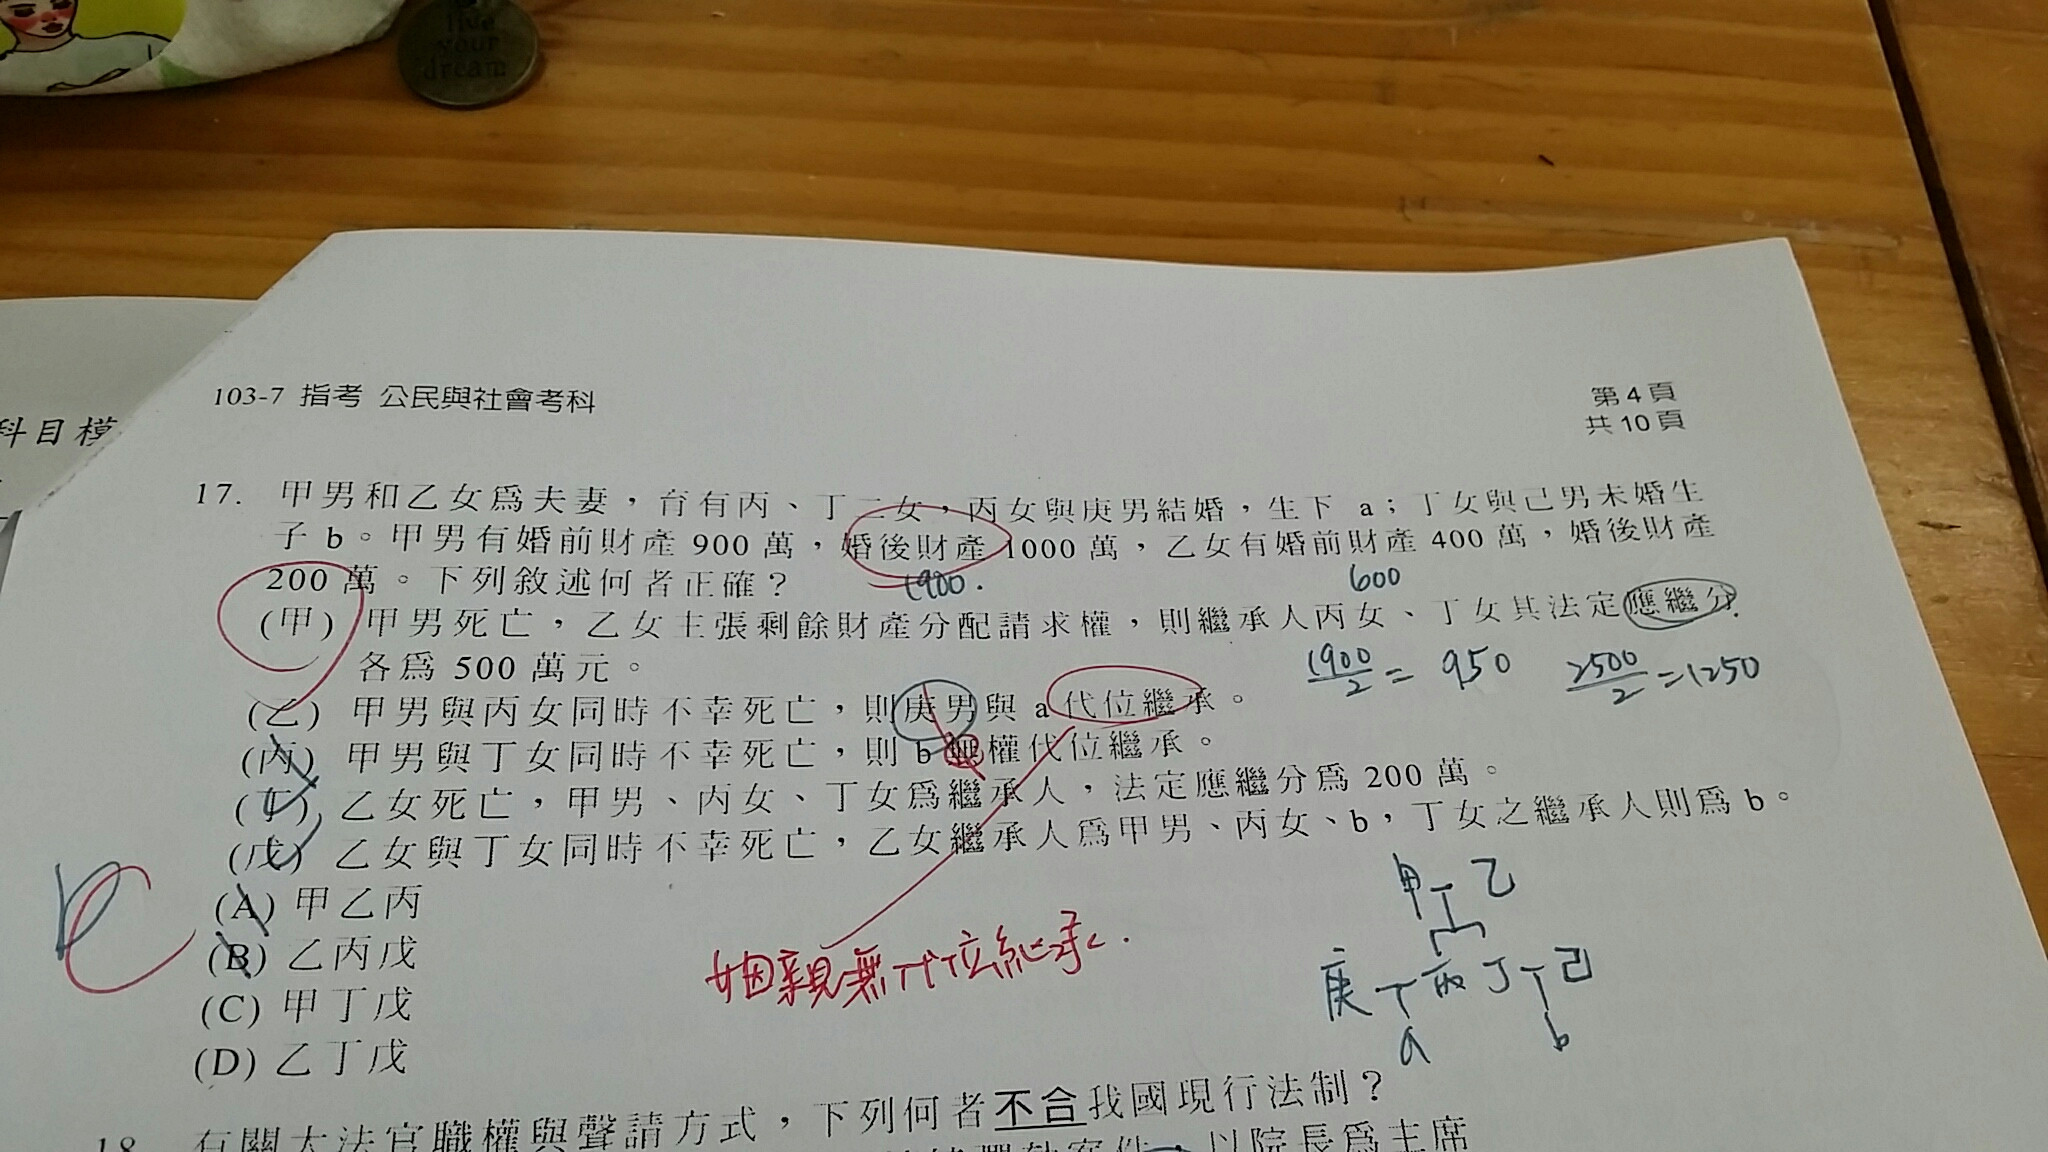 live
your
dream
科目模
103-7 指考 公民與社會考科
第 4 頁
共 10 頁
17. 甲男和乙女為夫妻，育有丙、丁二女，丙女與庚男結婚，生下 a；丁女與己男未婚生
子 b。甲男有婚前財產 900 萬，婚後財產 1000 萬，乙女有婚前財產 400 萬，婚後財產
200 萬。下列敘述何者正確？
1900.
600
(甲) 甲男死亡，乙女主張剩餘財產分配請求權，則繼承人丙女、丁女其法定應繼分
各為 500 萬元。
1900/2 = 950 2500/2 = 1250
(乙) 甲男與丙女同時不幸死亡，則庚男與 a 代位繼承。
(丙) 甲男與丁女同時不幸死亡，則 b 無權代位繼承。
(丁) 乙女死亡，甲男、丙女、丁女為繼承人，法定應繼分為 200 萬。
(戊) 乙女與丁女同時不幸死亡，乙女繼承人為甲男、丙女、b，丁女之繼承人則為 b。
(A) 甲乙丙
(B) 乙丙戊
(C) 甲丁戊
(D) 乙丁戊
C
姻親無代位繼承.
甲 乙
庚 丙 丁 己
a b
18. 有關大法官職權與聲請方式，下列何者不合我國現行法制？
以院長為主席